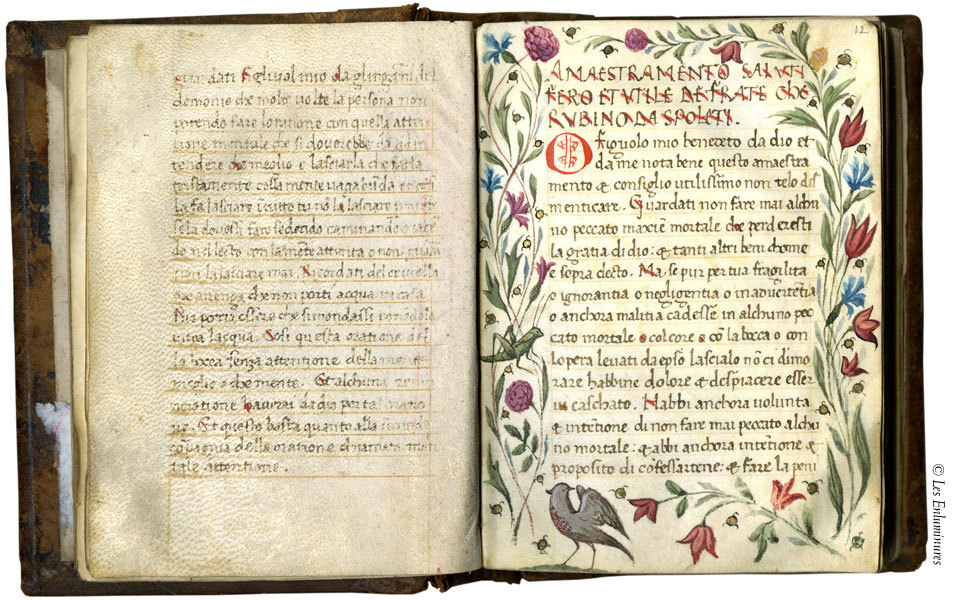 Guardati figliuol mio da glingãni dil
demonio che molte volte la persona non
potendo fare loratione con quella atten
tione mentale che si doverebbe da ad in
tendere che meglio e lasciarla che farla
tristamente colla mente vagabũda
la fa lasciare tu nõ la lasciare
caminando o iacẽ
do nel lecto con la mẽte attenta o non
lasciare mai. Ricordati del crivello
che non porti acqua in casa
essere che si mondassi
lacqua. Cosi questa oratione
bocca senza attentione della mẽte
meglio e che mente. Et alchuna
oratione haverai da dio
ne. Et questo basta quanto alla
cõpagnia della oratione
tale attentione.
12
AMAESTRAMENTO SALUTI
FERO ET UTILE DE FRATE CHE
RUBINO DA SPOLETI.
O figliuolo mio benedeto da dio et
da me nota bene questo amaestra
mento & consiglio utilissimo non telo dis
menticare. Guardati non fare mai alchu
no peccato maxĩe mortale che perderesti
la gratia di dio: & tanti altri beni chome
e sopra decto. Ma se pur per tua fragilita
o ignorantia o negligentia o inadvertẽtia
o anchora malitia cadesse in alchuno pec
cato mortale o col core o cõ la bocca o con
lopera levati da epso lascialo nõ ci dimo
rare habbine dolore & despiacere esser
ui caschato. Habbi anchora volunta
& intẽtione di non fare mai peccato alchu
no mortale: & abbi anchora intẽtione &
proposito di cõfessartene: & fare la peni
© Les Enluminures